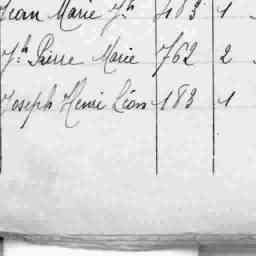 Jean Marie Jh 483 1
Jh Pierre Marie 762 2
Joseph Henri Léon 183 1